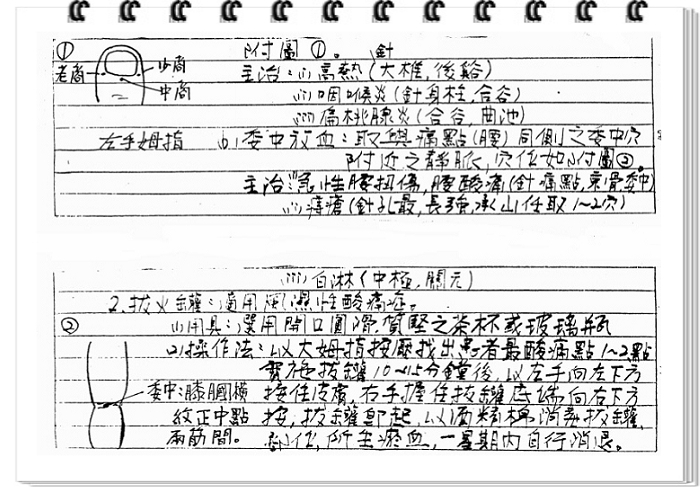 ① 附圖①。 針
老商 少商 中商 主治:(i)高熱(大椎,後谿)
(ii)咽喉炎(針身柱,合谷)
(iii)扁桃腺炎(合谷,曲池)
左手姆指 (6)委中放血:取與痛點(腰)同側之委中穴
附近之靜脈,穴位如附圖②。
主治:急性腰扭傷,腰酸痛(針痛點,束骨委中)
(ii)痔瘡(針孔最,長強,承山任取1~2穴)
(iii)白淋(中極,關元)
2.拔火罐:適用風濕性酸痛症。
② (1)用具:選用開口圓滑質堅之茶杯或玻璃瓶
(2)操作法:以大姆指按壓找出患者最酸痛點1~2點
實施拔罐10~15分鐘後,以左手向左下方
委中:膝膕橫 按住皮膚,右手握住拔罐底端向右下方
紋正中點 按,拔罐即起,以酒精棉消毒拔罐
兩筋間。 部位,所生瘀血,一星期內自行消退。